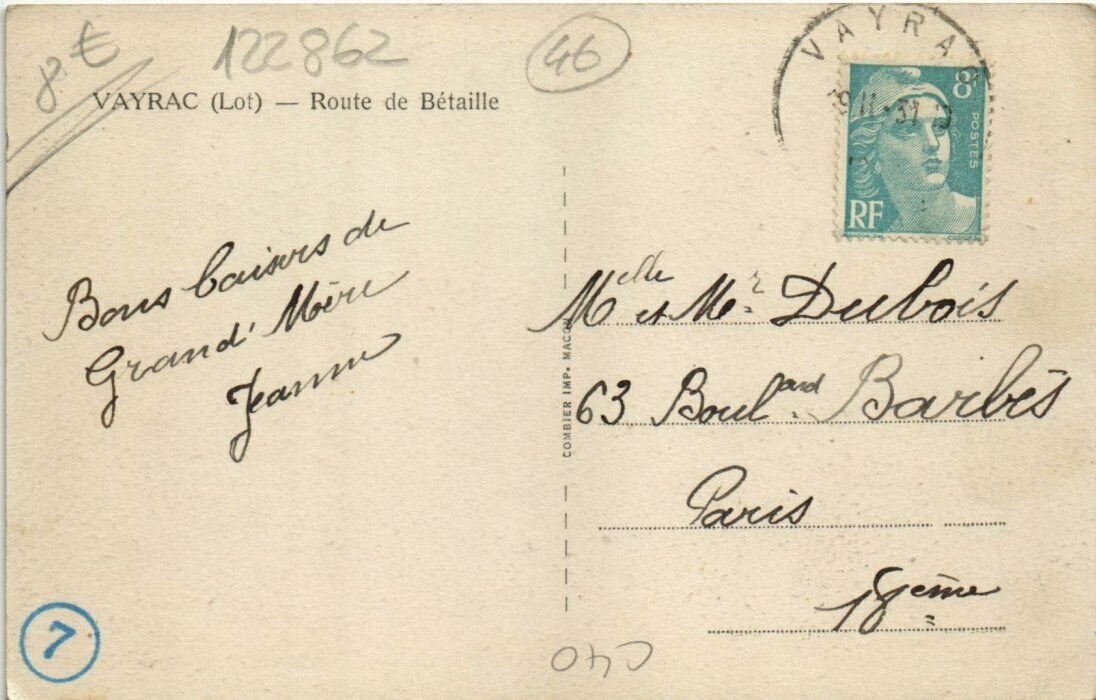 8 €
122862
46
VAYRAC (Lot) — Route de Bétaille
VAYRA
8F
POSTES
RF
Bons baisers de
Grand' Mère
Jeanne
COMBIER IMP. MACON
Melle et Mr Dubois
63 Boulard Barbès
Paris
18ème
7
C40